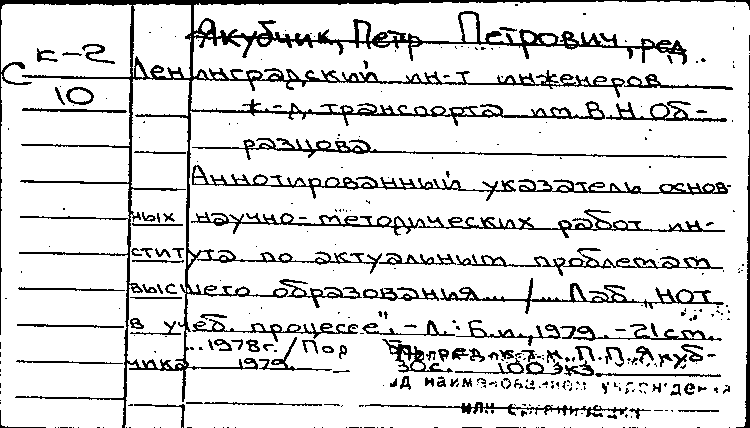 Якубчик, Петр Петрович, ред.
к-2
С
10
Ленинградский ин-т инженеров
ж.-д. транспорта им. В.Н. Об-
разцова.
Аннотированный указатель основ
ных научно-методических работ ин-
ститута по актуальным проблемам
высшего образования... /... Лаб. "НОТ
в учеб. процессе". - Л.: Б.и., 1979. - 21 ст.
...1978г. / Под ред. к.т.н. П.П. Якуб-
чика. 1979. 30с. 100 экз.
наименованием учреждения
или организации